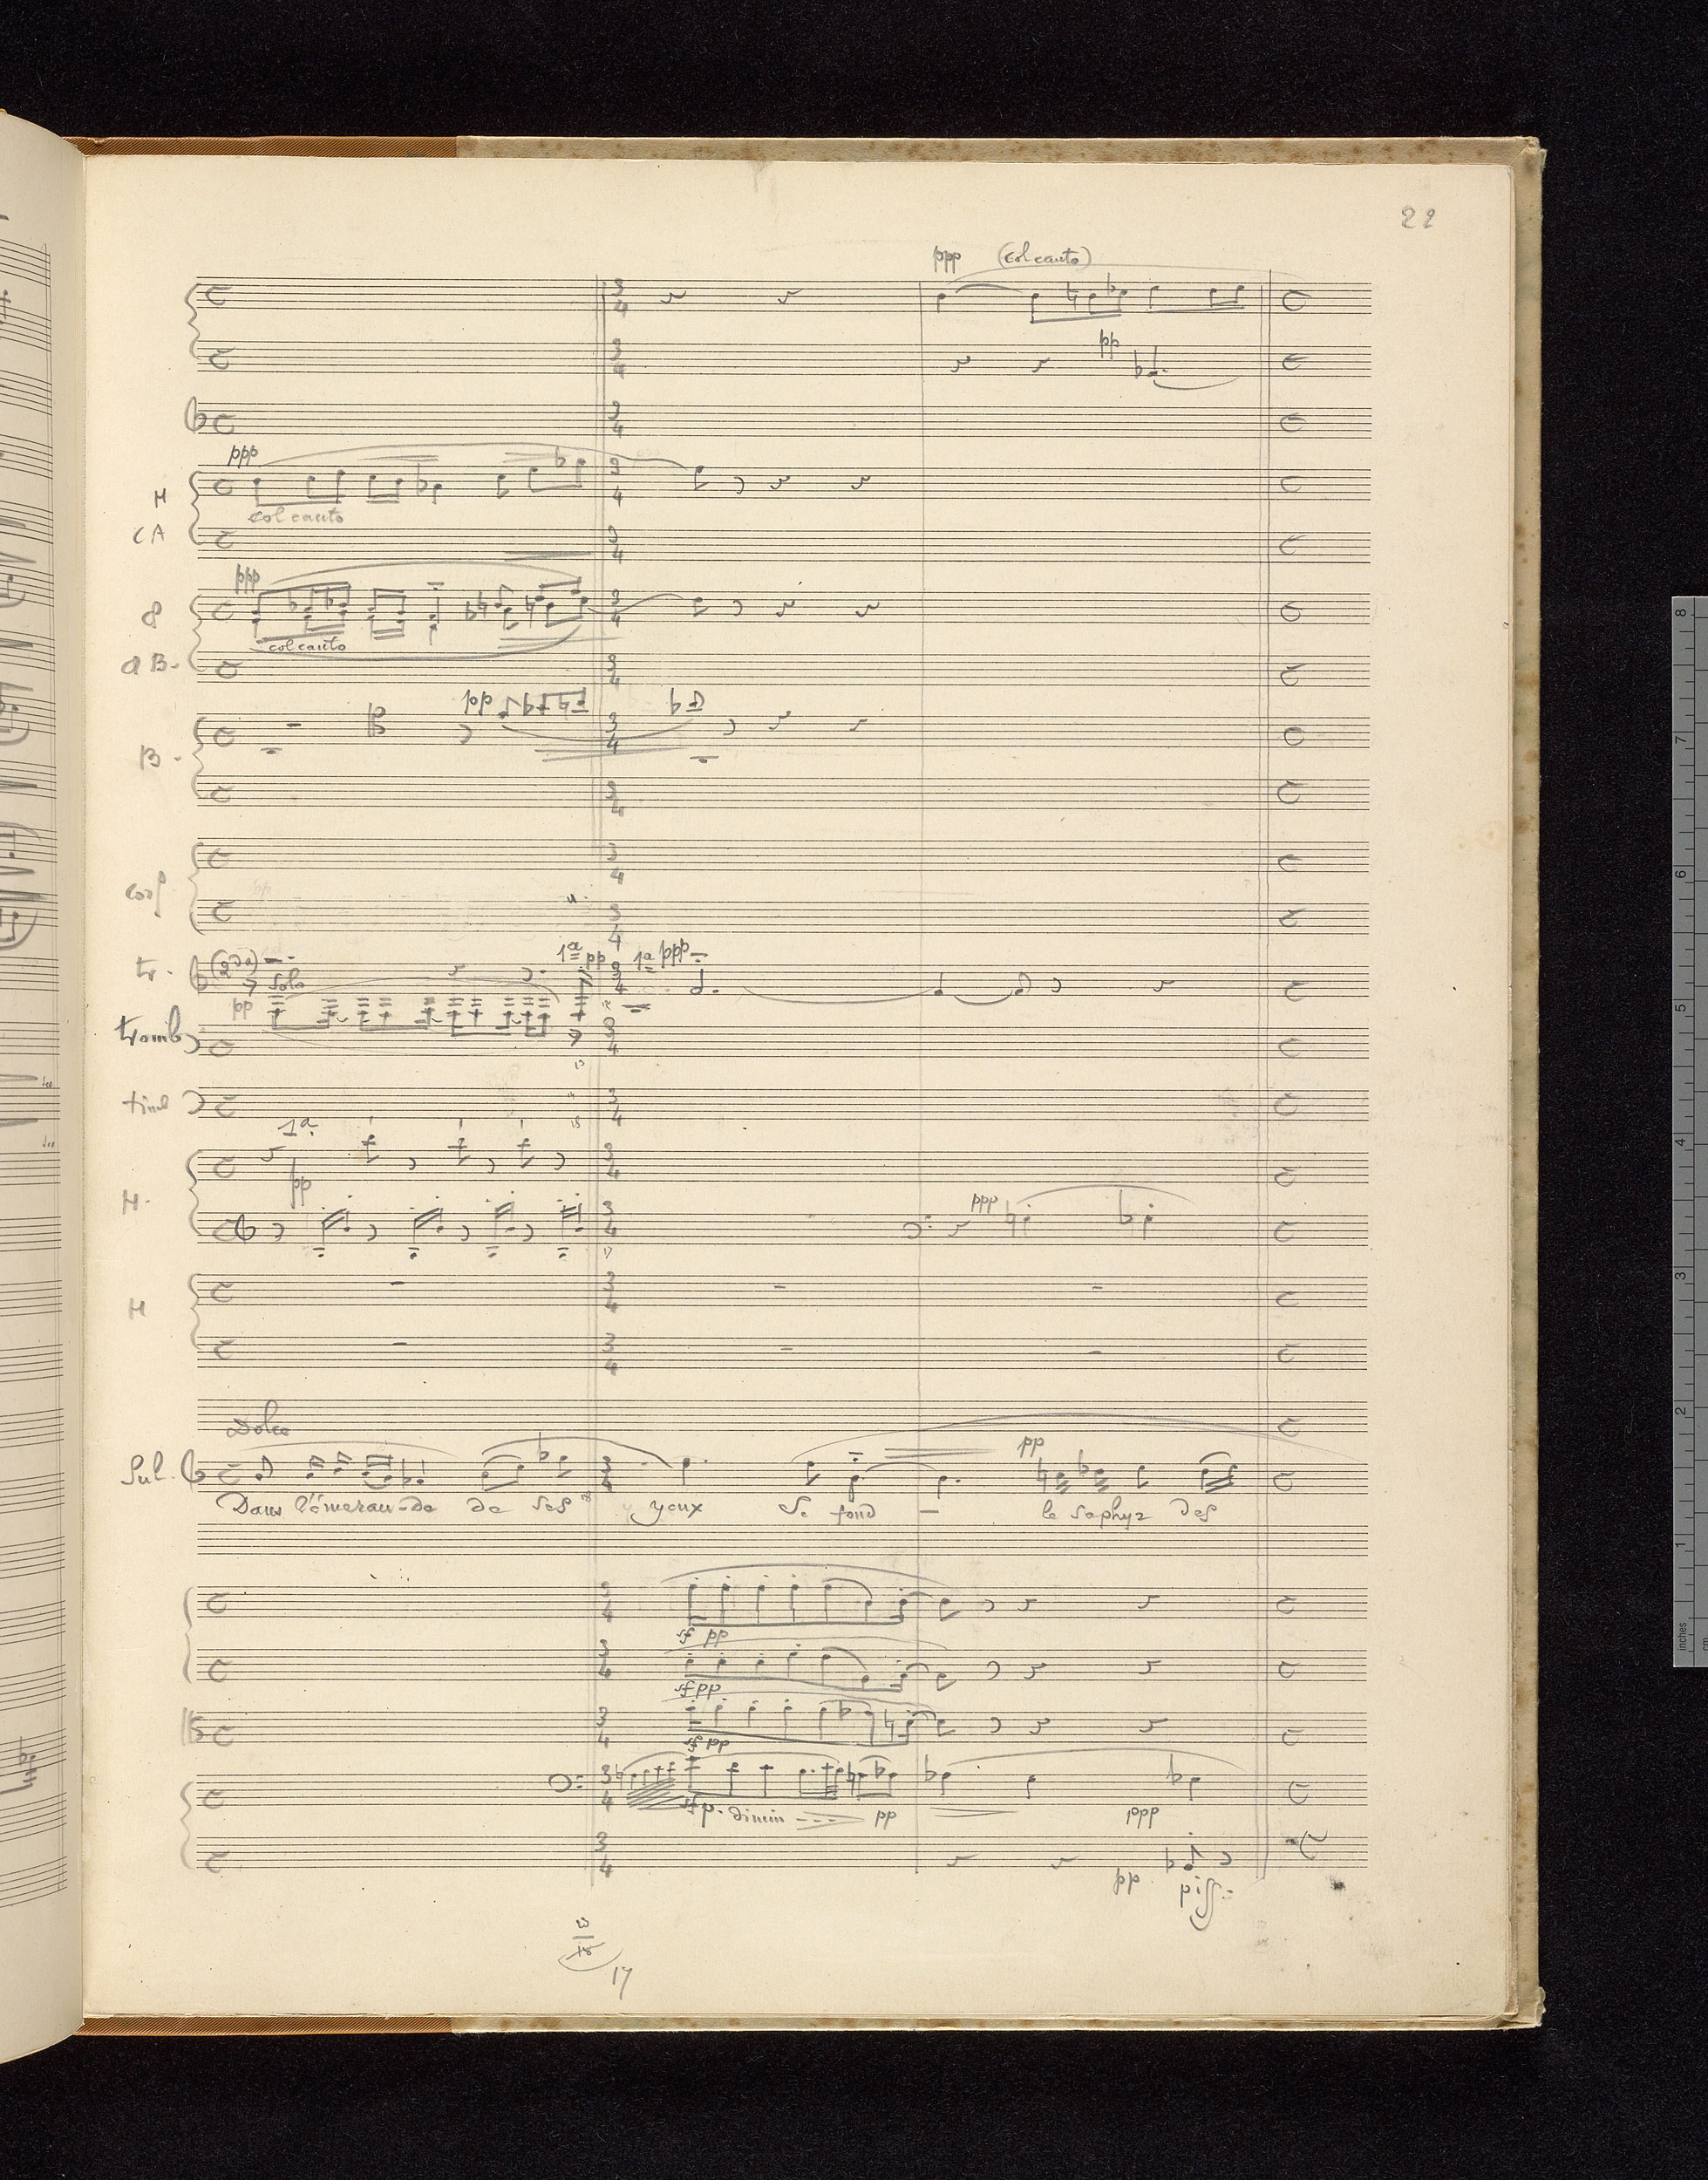 22
ppp (col canto)
pp
ppp
H
col canto
CA
ppp
col canto
B-
pp
B-
tr. (2da) solo 1a pp 1a ppp
pp
tromb
timb
1a
pp
H.
ppp
H
Dolce
pp
Sul.
Dans l'émerau-de de ses yeux Se fond — le saphyr des
sf pp
sf pp
sf pp
sf p. dimin --- pp ppp
pp pizz.
17